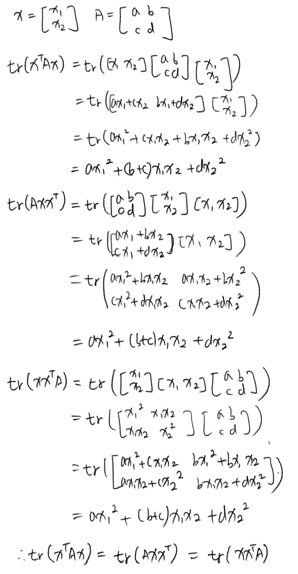 x = [x₁ x₂] A = [a b c d]
tr(xᵀAx) = tr([x₁ x₂] [a b c d] [x₁ x₂])
= tr([ax₁+cx₂ bx₁+dx₂] [x₁ x₂])
= tr(ax₁²+cx₁x₂+bx₁x₂+dx₂²)
= ax₁²+(b+c)x₁x₂+dx₂²
tr(Axxᵀ) = tr([a b c d] [x₁ x₂] [x₁ x₂])
= tr([ax₁+bx₂ cx₁+dx₂] [x₁ x₂])
= tr(ax₁²+bx₁x₂ ax₁x₂+bx₂²
cx₁²+dx₁x₂ cx₁x₂+dx₂²)
= ax₁²+(b+c)x₁x₂+dx₂²
tr(xxᵀA) = tr([x₁ x₂] [x₁ x₂] [a b c d])
= tr([x₁² x₁x₂ x₁x₂ x₂²] [a b c d])
= tr([ax₁²+cx₁x₂ bx₁²+dx₁x₂
ax₁x₂+cx₂² bx₁x₂+dx₂²])
= ax₁²+(b+c)x₁x₂+dx₂²
∴tr(xᵀAx) = tr(Axxᵀ) = tr(xxᵀA)